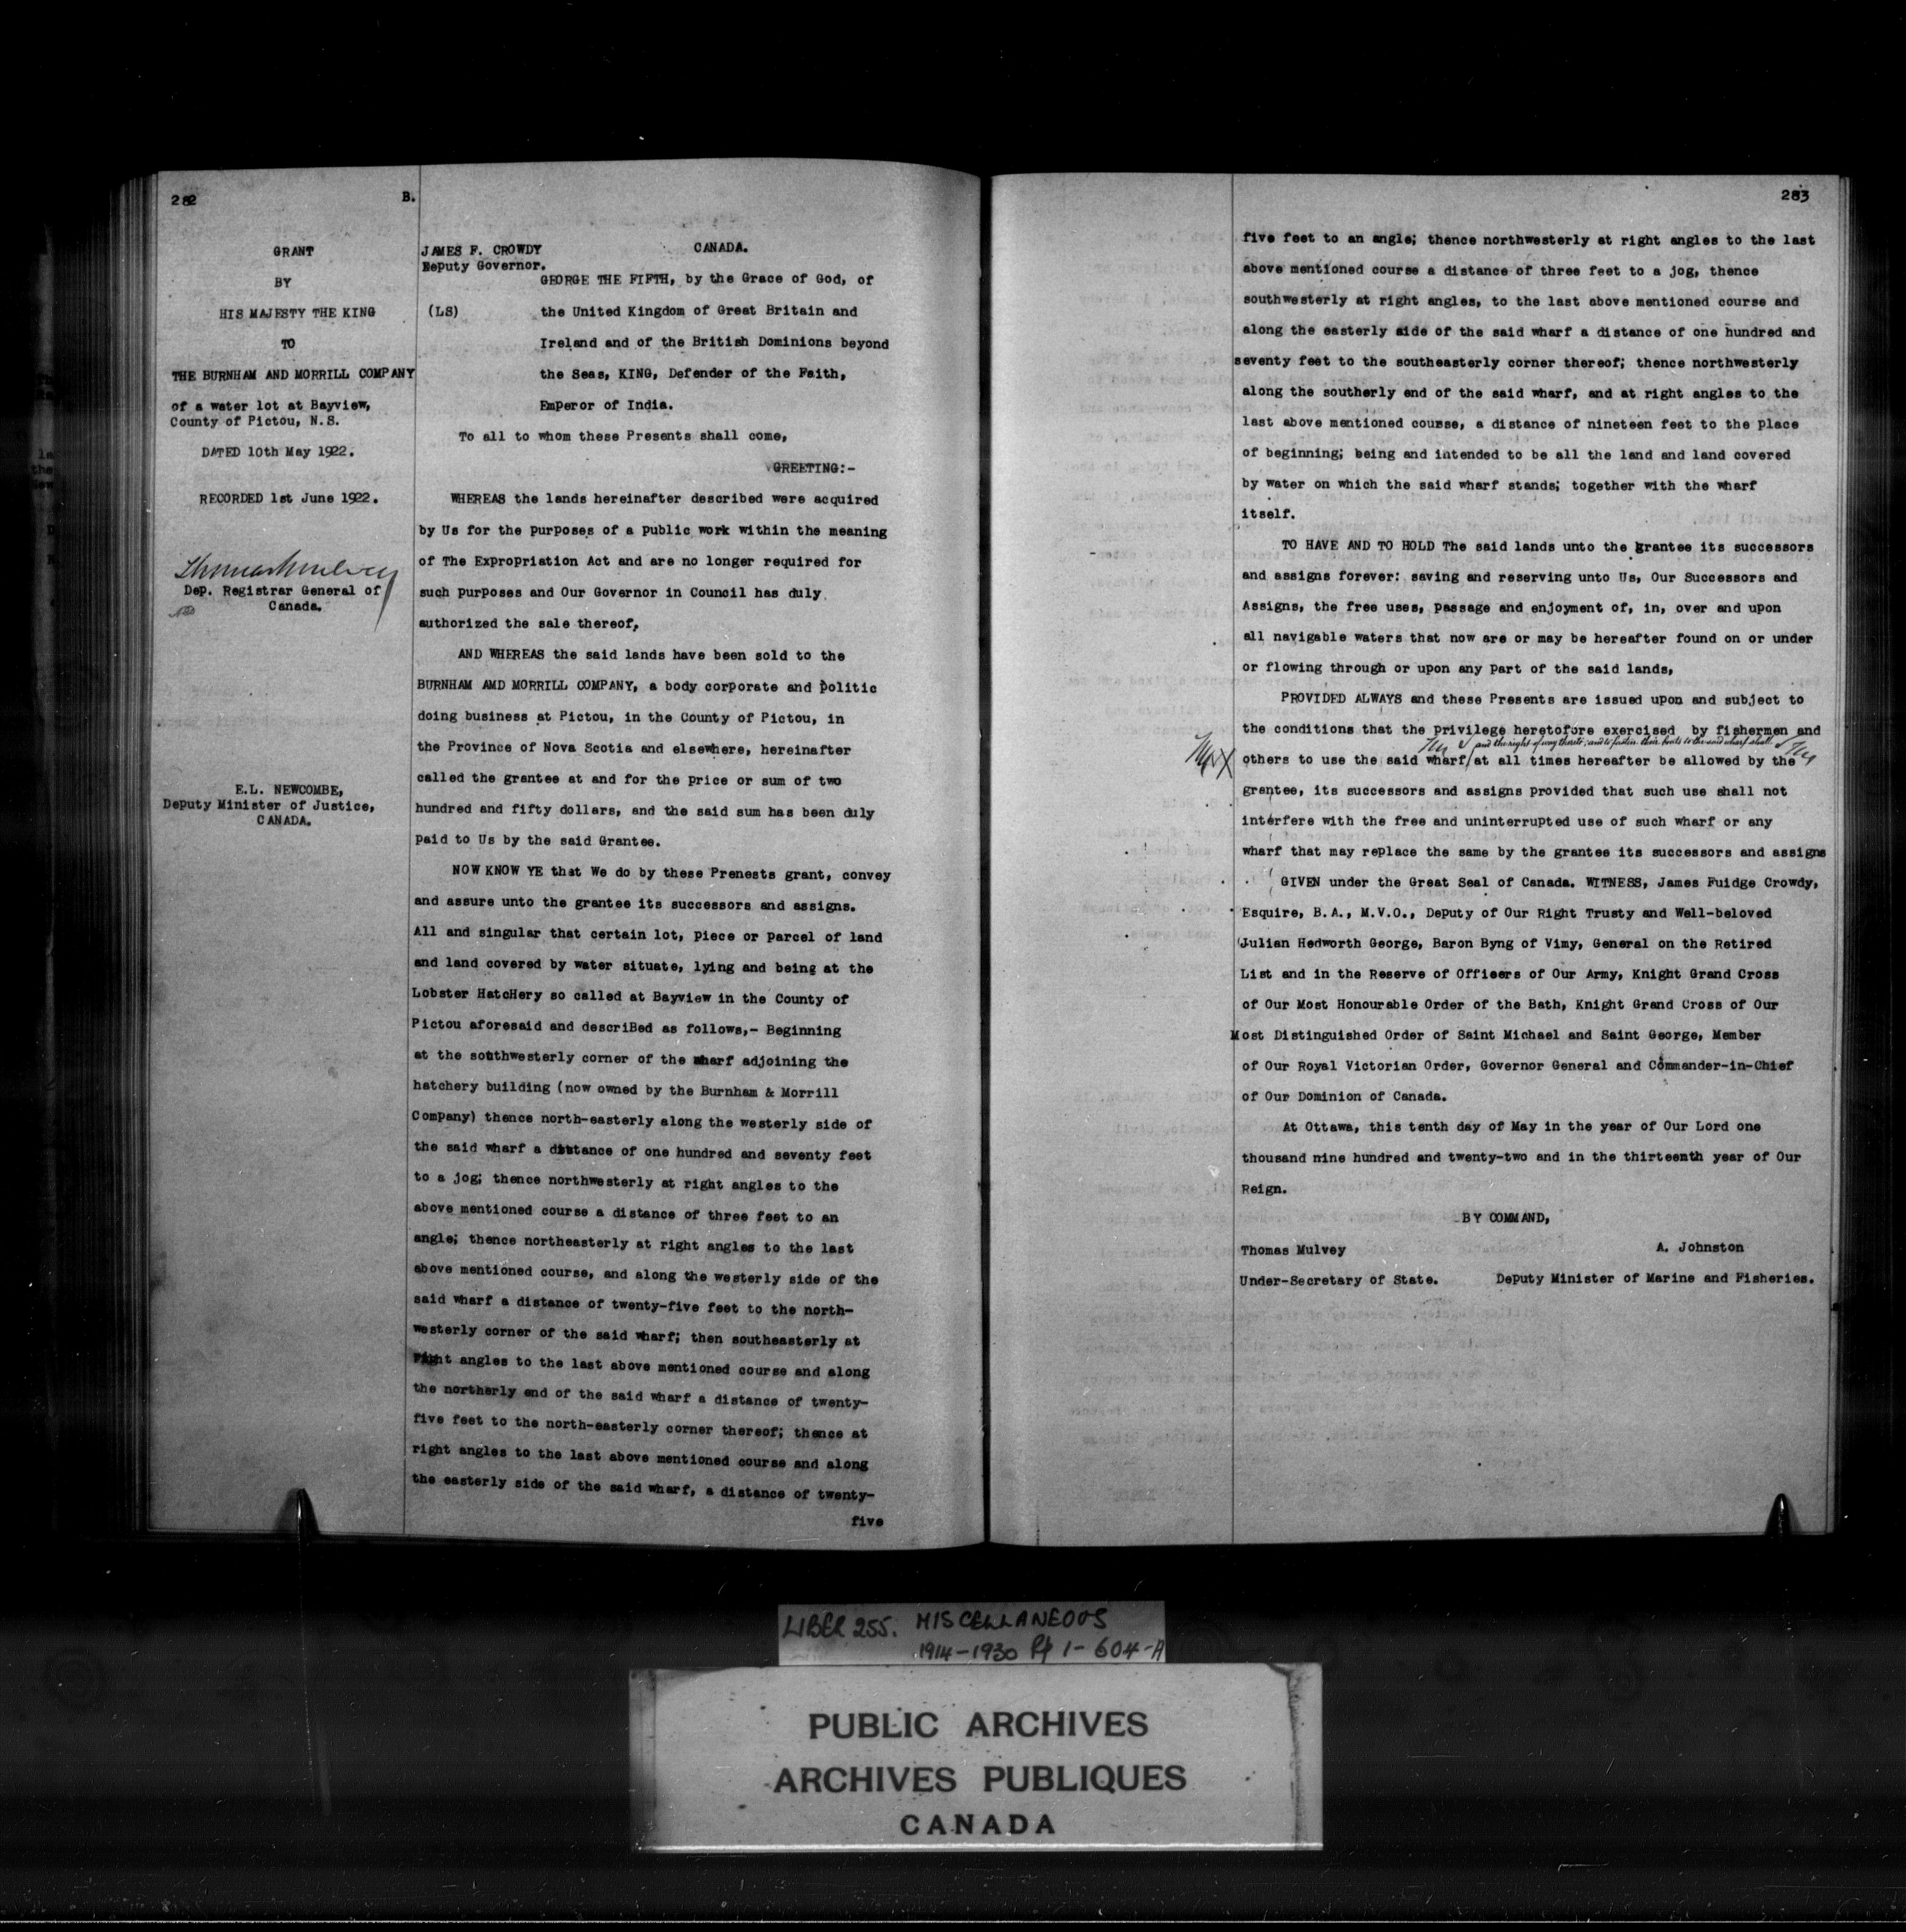 282
B.
GRANT
BY
HIS MAJESTY THE KING
TO
THE BURNHAM AND MORRILL COMPANY
of a water lot at Bayview,
County of Pictou, N.S.
DATED 10th May 1922.
RECORDED 1st June 1922.
Thomas Mulvey
Dep. Registrar General of
Canada.
E.L. NEWCOMBE,
Deputy Minister of Justice,
CANADA.
JAMES F. CROWDY
Deputy Governor.
CANADA.
(LS)
GEORGE THE FIFTH, by the Grace of God, of
the United Kingdom of Great Britain and
Ireland and of the British Dominions beyond
the Seas, KING, Defender of the Faith,
Emperor of India.
To all to whom these Presents shall come,
GREETING:-
WHEREAS the lands hereinafter described were acquired
by Us for the purposes of a public work within the meaning
of The Expropriation Act and are no longer required for
such purposes and Our Governor in Council has duly
authorized the sale thereof,
AND WHEREAS the said lands have been sold to the
BURNHAM AMD MORRILL COMPANY, a body corporate and politic
doing business at Pictou, in the County of Pictou, in
the Province of Nova Scotia and elsewhere, hereinafter
called the grantee at and for the price or sum of two
hundred and fifty dollars, and the said sum has been duly
paid to Us by the said Grantee.
NOW KNOW YE that We do by these Prenests grant, convey
and assure unto the grantee its successors and assigns.
All and singular that certain lot, piece or parcel of land
and land covered by water situate, lying and being at the
Lobster HatcHery so called at Bayview in the County of
Pictou aforesaid and descriBed as follows,- Beginning
at the southwesterly corner of the wharf adjoining the
hatchery building (now owned by the Burnham & Morrill
Company) thence north-easterly along the westerly side of
the said wharf a distance of one hundred and seventy feet
to a jog; thence northwesterly at right angles to the
above mentioned course a distance of three feet to an
angle; thence northeasterly at right angles to the last
above mentioned course, and along the westerly side of the
said wharf a distance of twenty-five feet to the north-
westerly corner of the said wharf; then southeasterly at
right angles to the last above mentioned course and along
the northerly end of the said wharf a distance of twenty-
five feet to the north-easterly corner thereof; thence at
right angles to the last above mentioned course and along
the easterly side of the said wharf, a distance of twenty-
five
283
five feet to an angle; thence northwesterly at right angles to the last
above mentioned course a distance of three feet to a jog, thence
southwesterly at right angles, to the last above mentioned course and
along the easterly side of the said wharf a distance of one hundred and
seventy feet to the southeasterly corner thereof; thence northwesterly
along the southerly end of the said wharf, and at right angles to the
last above mentioned course, a distance of nineteen feet to the place
of beginning; being and intended to be all the land and land covered
by water on which the said wharf stands; together with the wharf
itself.
TO HAVE AND TO HOLD The said lands unto the grantee its successors
and assigns forever: saving and reserving unto Us, Our Successors and
Assigns, the free uses, passage and enjoyment of, in, over and upon
all navigable waters that now are or may be hereafter found on or under
or flowing through or upon any part of the said lands,
PROVIDED ALWAYS and these Presents are issued upon and subject to
the conditions that the privilege heretofore exercised by fishermen and
and the right of way thereto, and to fasten their boats to the said wharf shall
others to use the said wharf/at all times hereafter be allowed by the
grantee, its successors and assigns provided that such use shall not
interfere with the free and uninterrupted use of such wharf or any
wharf that may replace the same by the grantee its successors and assigns
GIVEN under the Great Seal of Canada. WITNESS, James Fuidge Crowdy,
Esquire, B.A., M.V.O., Deputy of Our Right Trusty and Well-beloved
Julian Hedworth George, Baron Byng of Vimy, General on the Retired
List and in the Reserve of Officers of Our Army, Knight Grand Cross
of Our Most Honourable Order of the Bath, Knight Grand Cross of Our
Most Distinguished Order of Saint Michael and Saint George, Member
of Our Royal Victorian Order, Governor General and Commander-in-Chief
of Our Dominion of Canada.
At Ottawa, this tenth day of May in the year of Our Lord one
thousand nine hundred and twenty-two and in the thirteenth year of Our
Reign.
BY COMMAND,
Thomas Mulvey
A. Johnston
Under-Secretary of State.
Deputy Minister of Marine and Fisheries.
LIBER 255. MISCELLANEOUS
1914-1930 Pp 1-604-A
PUBLIC ARCHIVES
ARCHIVES PUBLIQUES
CANADA